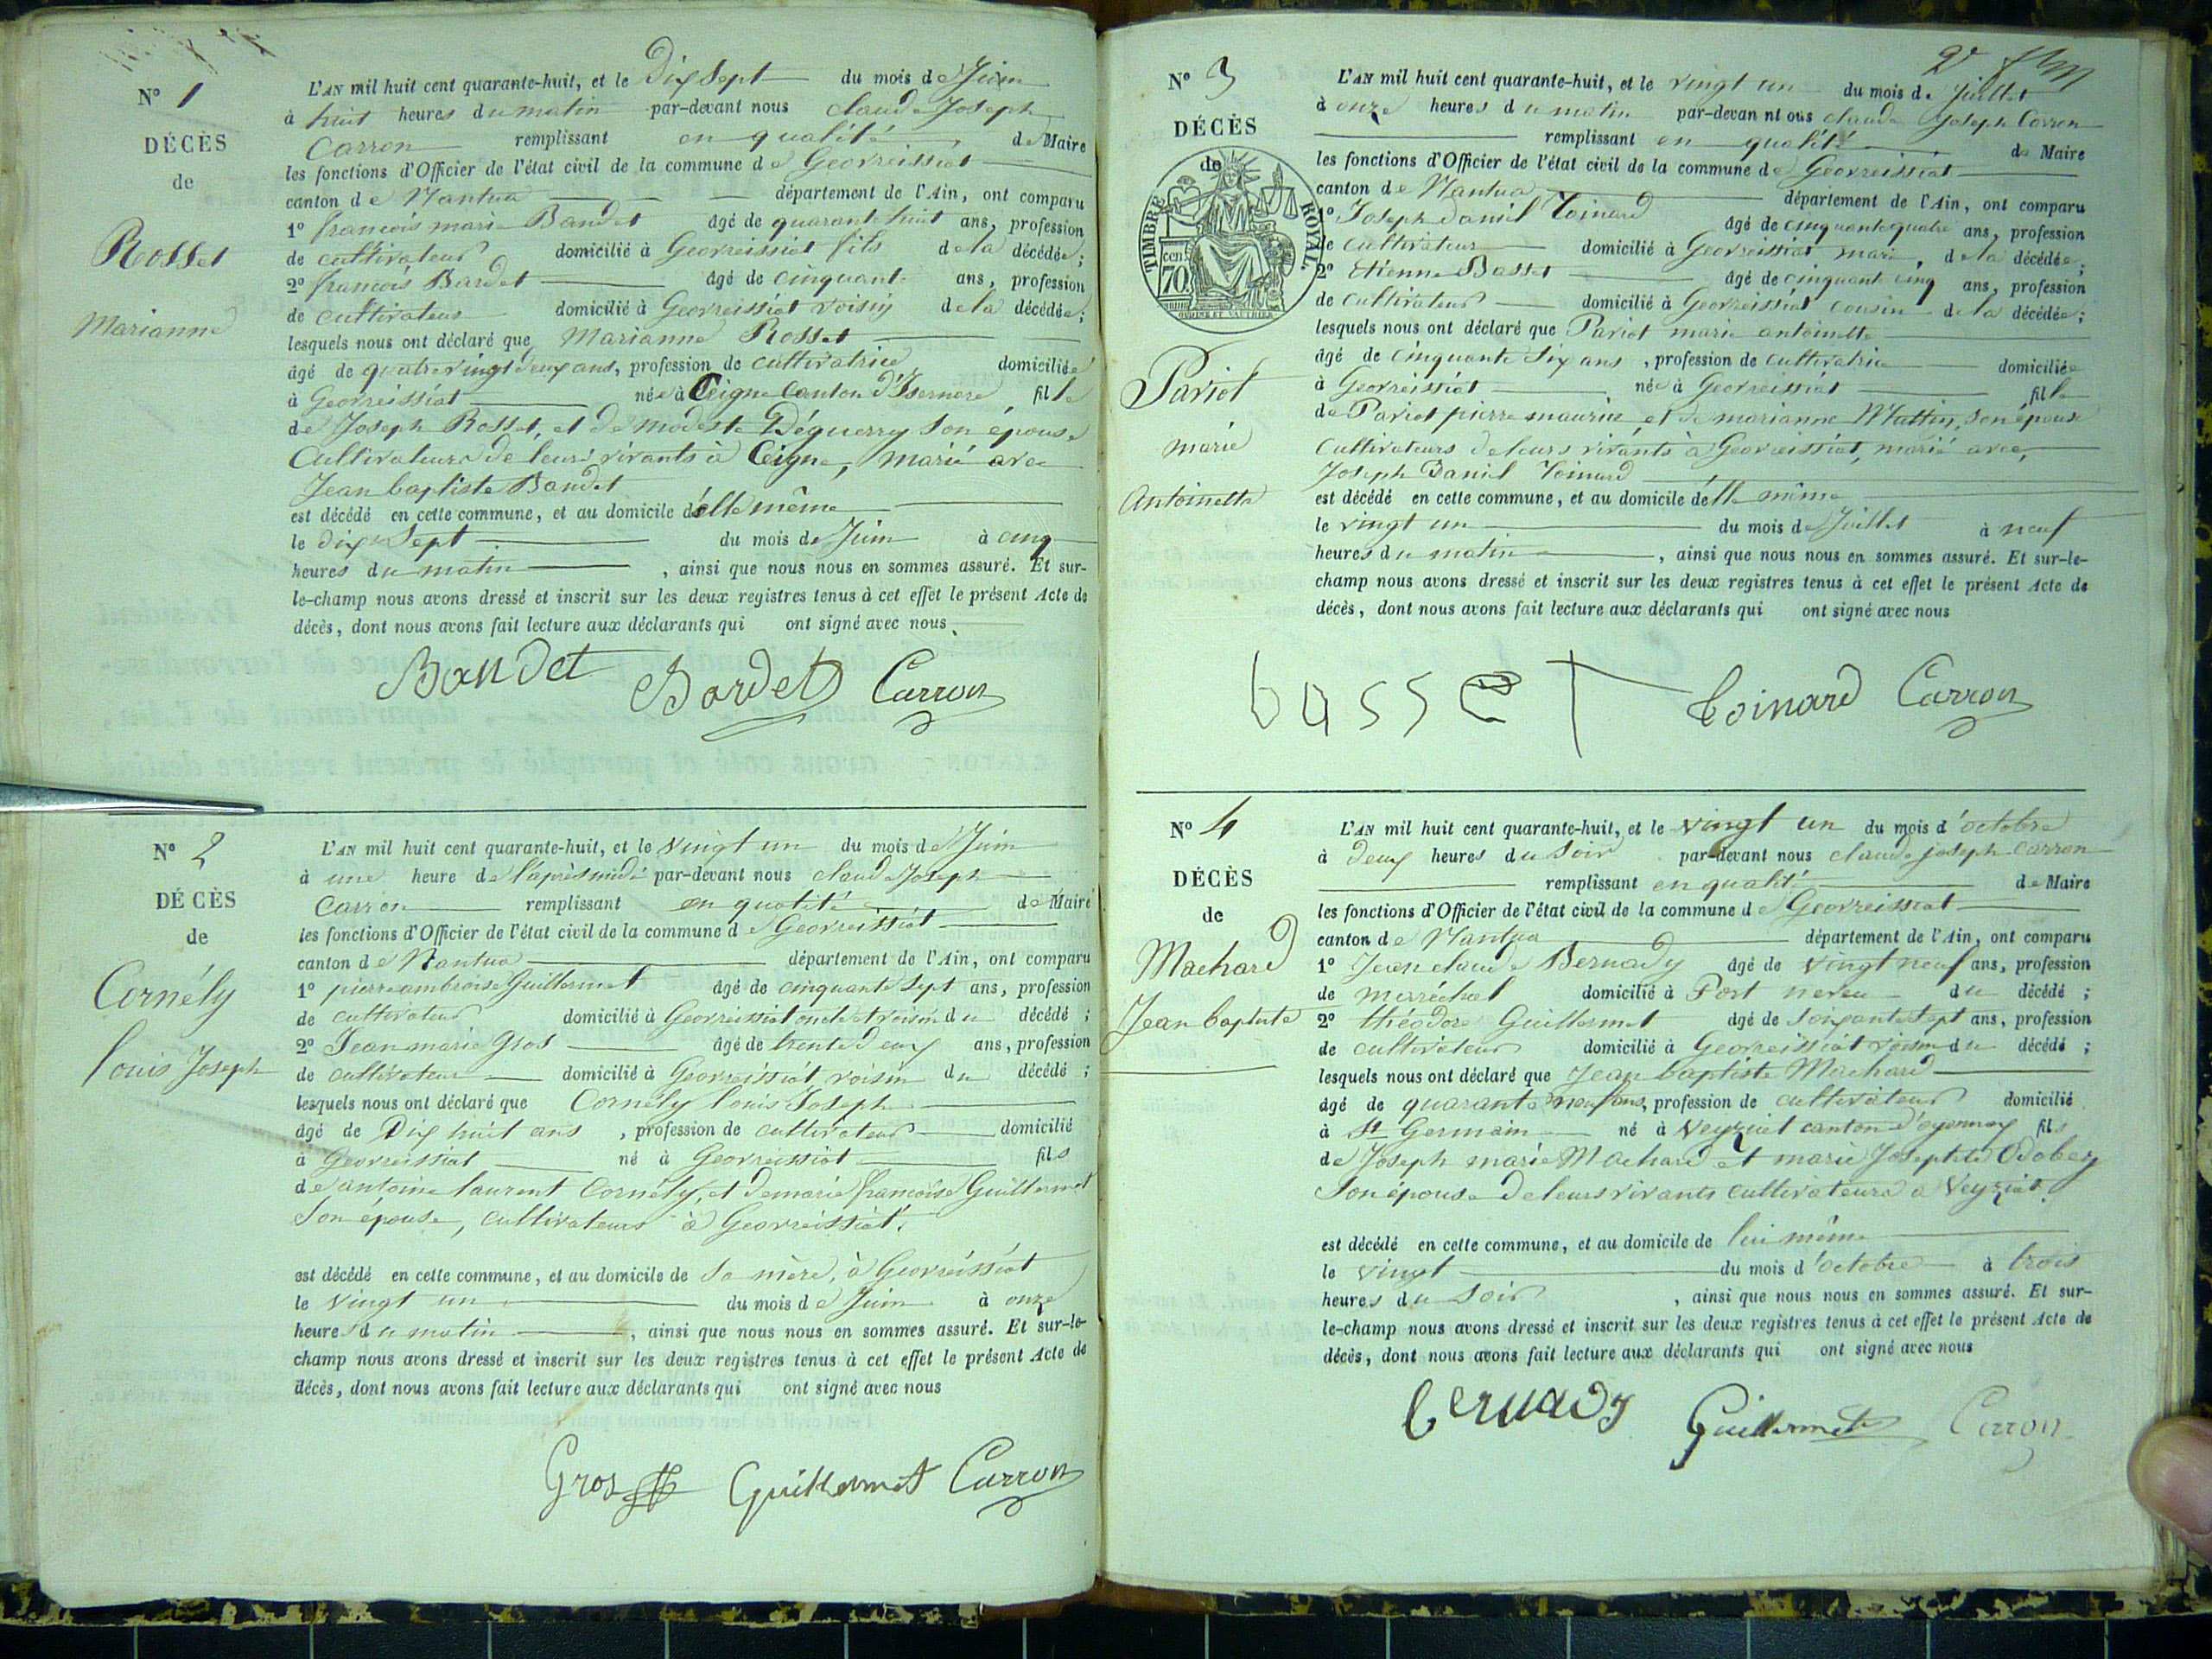 N° 1
DÉCÈS
de
Rosset
Marianne
L'AN mil huit cent quarante-huit, et le Dix Sept du mois de Juin
à huit heures du matin par-devant nous claude Joseph
Carron remplissant en qualité de Maire
les fonctions d'Officier de l'état civil de la commune de Geovreissiat
canton de Nantua département de l'Ain, ont comparu
1° francois marie Baudet âgé de quarante huit ans, profession
de cultivateur domicilié à Geovreissiat fils de la décédée;
2° francois Bardet âgé de cinquante ans, profession
de cultivateur domicilié à Geovreissiat voisin de la décédée;
lesquels nous ont déclaré que Marianne Rosset
âgé de quatre vingt deux ans, profession de cultivatrice domiciliée
à Geovreissiat née à Ceigne Canton d'Isernore fille
de Joseph Rosset, et de modeste Déguerry son épouse
Cultivateurs de leurs vivants à Ceigne, marié avec
Jean baptiste Baudet
est décédé en cette commune, et au domicile d'elle même
le dix Sept du mois de Juin à cinq
heures du matin , ainsi que nous nous en sommes assuré. Et sur-
le-champ nous avons dressé et inscrit sur les deux registres tenus à cet effet le présent Acte de
décès, dont nous avons fait lecture aux déclarants qui ont signé avec nous
Baudet Bardet Carron
N° 2
DÉCÈS
de
Cornély
louis Joseph
L'AN mil huit cent quarante-huit, et le vingt un du mois de Juin
à une heure de l'après midi par-devant nous claude Joseph
Carron remplissant en qualité de Maire
les fonctions d'Officier de l'état civil de la commune de Geovreissiat
canton de Nantua département de l'Ain, ont comparu
1° pierre ambroise Guillermet âgé de cinquante sept ans, profession
de cultivateur domicilié à Geovreissiat oncle et voisin du décédé ;
2° Jean marie Gros âgé de trente deux ans, profession
de cultivateur domicilié à Geovreissiat voisin du décédé ;
lesquels nous ont déclaré que Cornély louis Joseph
âgé de Dix huit ans , profession de cultivateur domicilié
à Geovreissiat né à Geovreissiat fils
de antoine laurent Cornély, et de marie francoise Guillermet
Son épouse, cultivateurs à Geovreissiat.
est décédé en cette commune, et au domicile de sa mère, à Geovreissiat
le vingt un du mois de Juin à onze
heures du matin , ainsi que nous nous en sommes assuré. Et sur-le-
champ nous avons dressé et inscrit sur les deux registres tenus à cet effet le présent Acte de
décès, dont nous avons fait lecture aux déclarants qui ont signé avec nous
Gros Guillermet Carron
N° 3
DÉCÈS
de
TIMBRE ROYAL.
70
Pariot
marie
Antoinette
L'AN mil huit cent quarante-huit, et le vingt un du mois de Juillet
à onze heures du matin par-devan nt ous claude Joseph Carron
remplissant en qualité de Maire
les fonctions d'Officier de l'état civil de la commune de Geovreissiat
canton de Nantua département de l'Ain, ont comparu
1° Joseph Daniel Toinard âgé de cinquante quatre ans, profession
de cultivateur domicilié à Geovreissiat mari, de la décédée;
2° Etienne Basset âgé de cinquante cinq ans, profession
de cultivateur domicilié à Geovreissiat cousin de la décédée;
lesquels nous ont déclaré que Pariot marie antoinette
âgé de cinquante Six ans , profession de cultivatrice domiciliée
à Geovreissiat née à Geovreissiat fille
de Pariot pierre maurice et de marianne Mattin, son épouse
cultivateurs de leurs vivants à Geovreissiat, marié avec,
Joseph Daniel Toinard
est décédé en cette commune, et au domicile d'elle même
le vingt un du mois de Juillet à neuf
heures du matin , ainsi que nous nous en sommes assuré. Et sur-le-
champ nous avons dressé et inscrit sur les deux registres tenus à cet effet le présent Acte de
décès, dont nous avons fait lecture aux déclarants qui ont signé avec nous
basset toinard Carron
N° 4
DÉCÈS
de
Machard
Jean baptiste
L'AN mil huit cent quarante-huit, et le vingt un du mois d'octobre
à deux heures du soir par-devant nous claude joseph Carron
remplissant en qualité de Maire
les fonctions d'Officier de l'état civil de la commune de Geovreissiat
canton de Nantua département de l'Ain, ont comparu
1° Jean claude Bernady âgé de vingt neuf ans, profession
de maréchal domicilié à Port neveu du décédé ;
2° théodore Guillermet âgé de soixante sept ans, profession
de cultivateur domicilié à Geovreissiat voisin du décédé ;
lesquels nous ont déclaré que Jean baptiste Machard
âgé de quarante neuf ans, profession de cultivateur domicilié
à St Germain né à Veyziat canton d'oyonnax fils
de Joseph marie Machard et marie Josephte Odobez
Son épouse de leurs vivants cultivateurs à Veyziat
est décédé en cette commune, et au domicile de lui même
le vingt du mois d'octobre à trois
heures du soir , ainsi que nous nous en sommes assuré. Et sur-
le-champ nous avons dressé et inscrit sur les deux registres tenus à cet effet le présent Acte de
décès, dont nous avons fait lecture aux déclarants qui ont signé avec nous
bernady Guillermet Carron